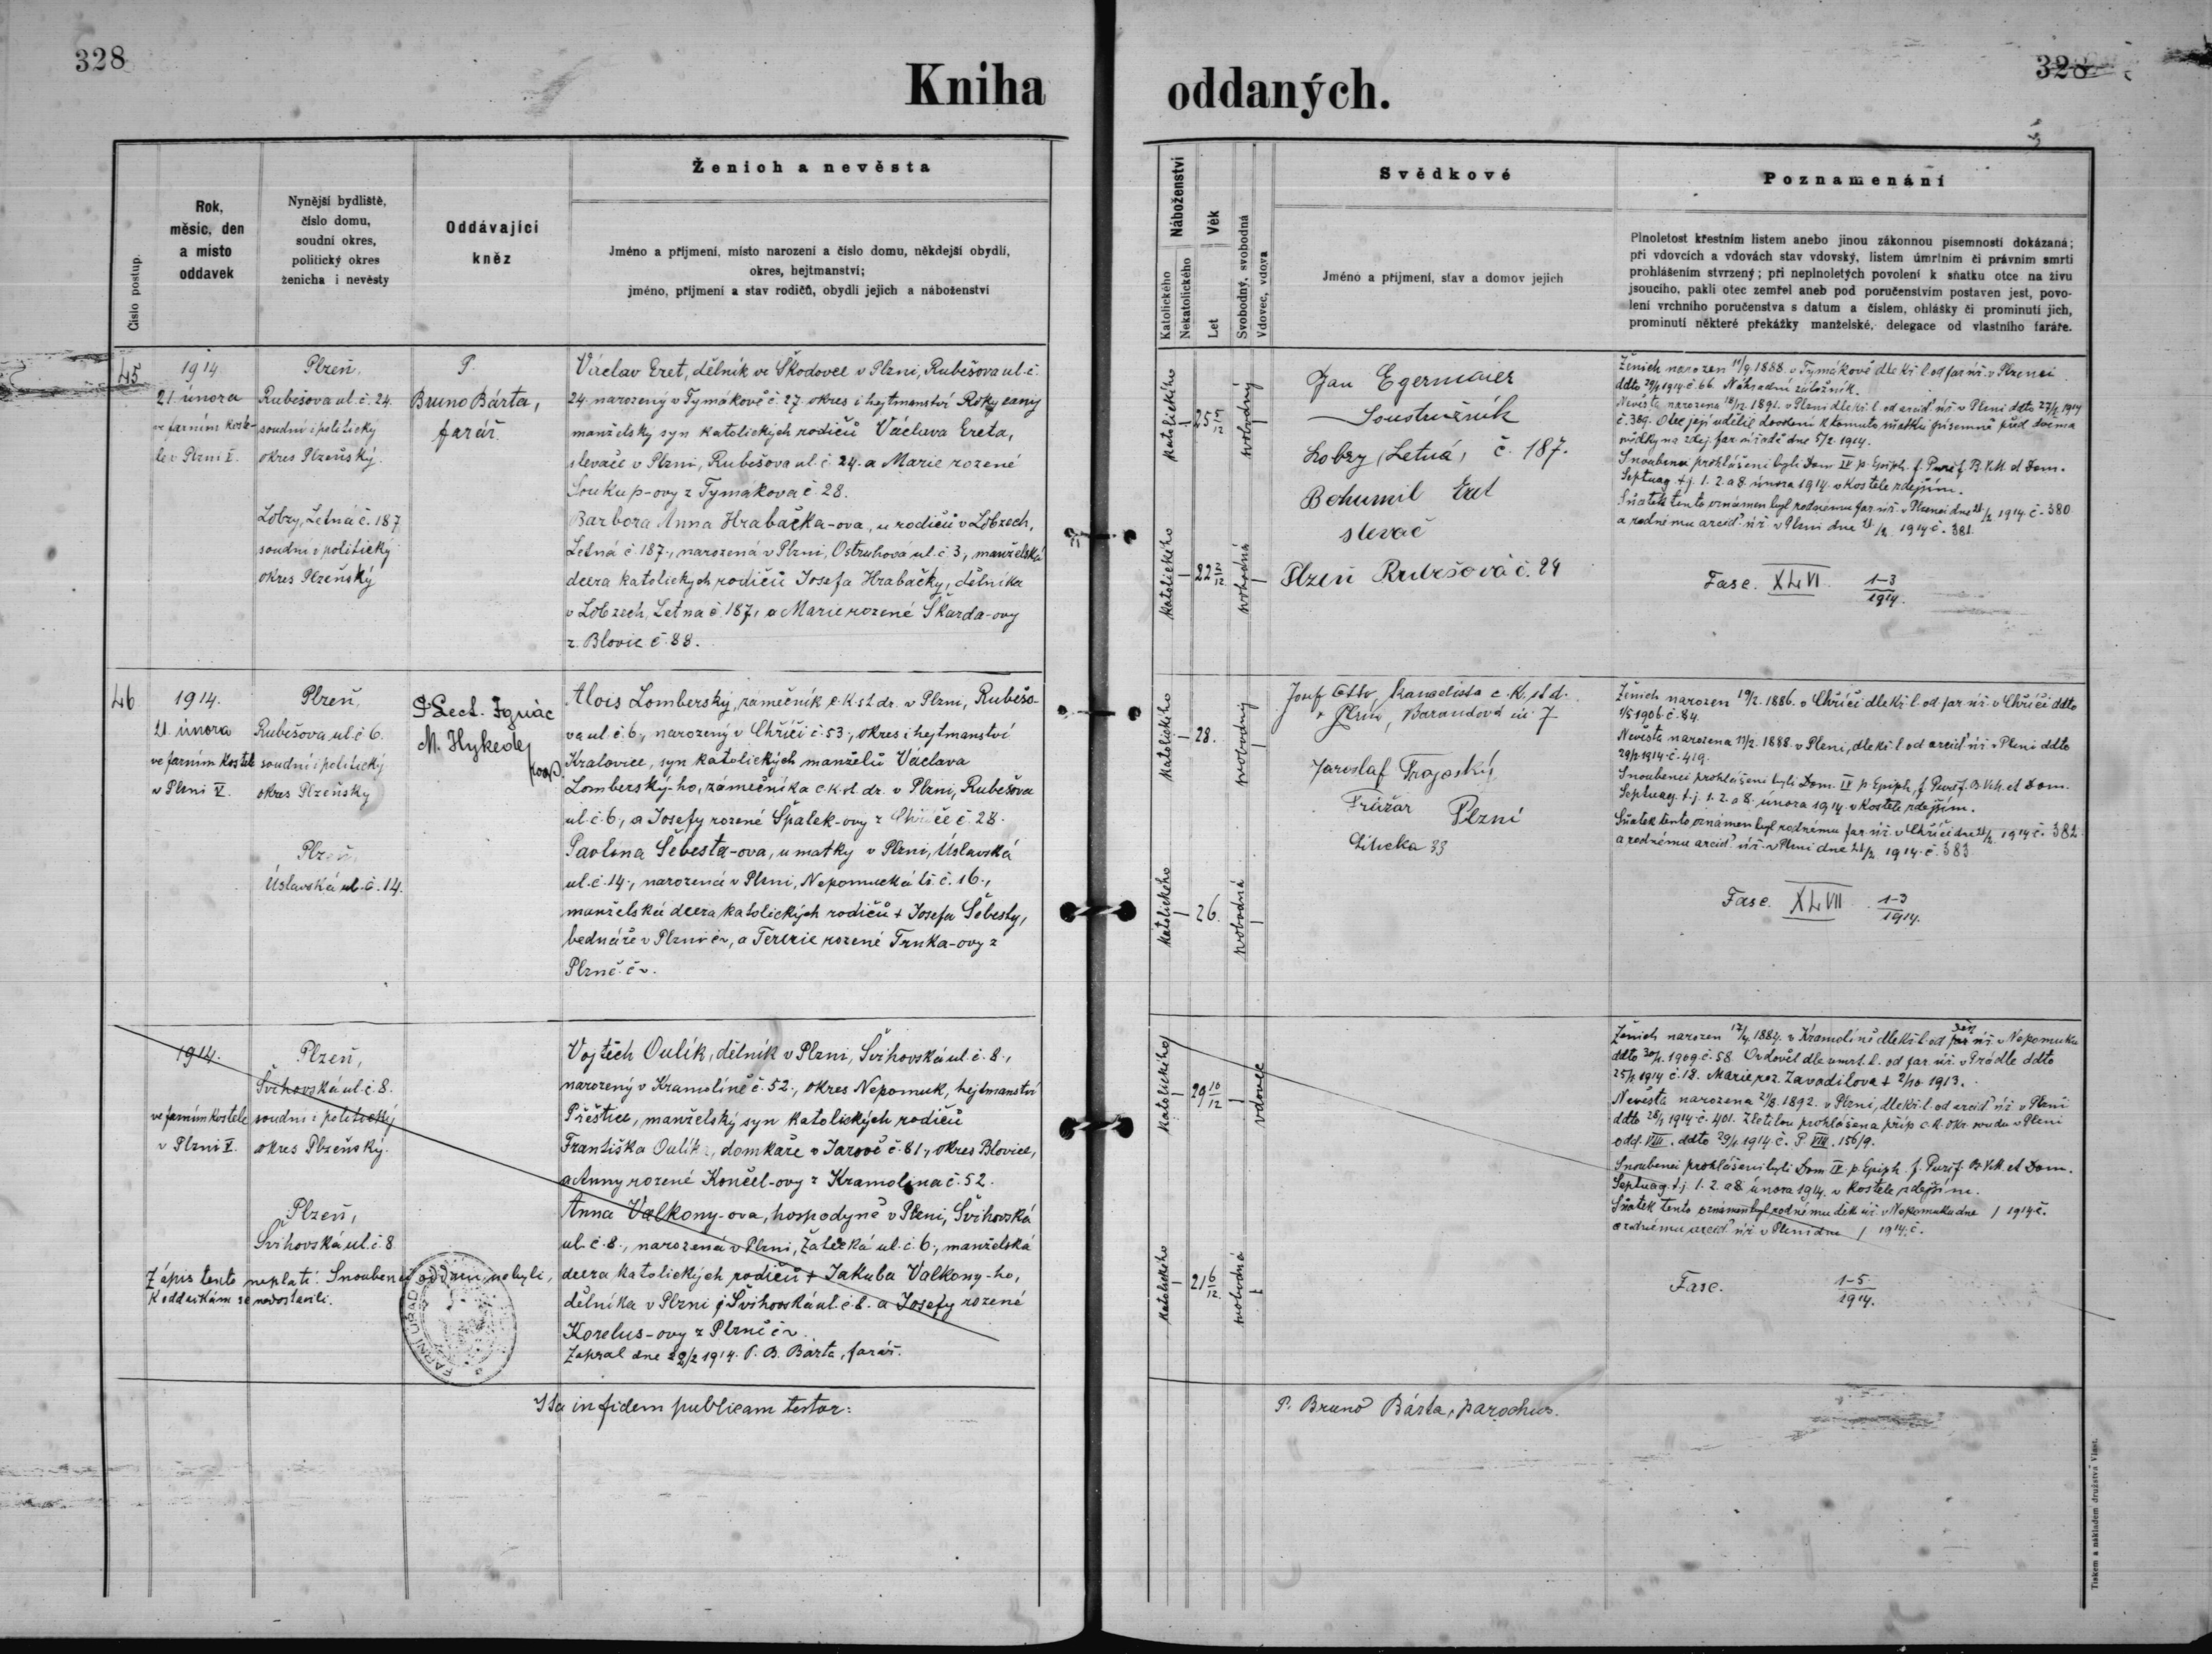 328
328
Kniha oddaných.
Číslo postup.
Rok,
měsíc, den
a místo
oddavek
Nynější bydliště,
číslo domu,
soudní okres,
politický okres
ženicha i nevěsty
Oddávající
kněz
Ženich a nevěsta
Jméno a příjmení, místo narození a číslo domu, někdejší obydlí,
okres, hejtmanství;
jméno, příjmení a stav rodičů, obydlí jejich a náboženství
Náboženství
Katolického
Nekatolického
Věk
Let
Svobodný, svobodná
Vdovec, vdova
Svědkové
Jméno a příjmení, stav a domov jejich
Poznamenání
Plnoletost křestním listem anebo jinou zákonnou písemností dokázaná;
při vdovcích a vdovách stav vdovský, listem úmrtním či právním smrti
prohlášením stvrzený; při neplnoletých povolení k sňatku otce na živu
jsoucího, pakli otec zemřel aneb pod poručenstvím postaven jest, povo-
lení vrchního poručenstva s datum a číslem, ohlášky či prominutí jich,
prominutí některé překážky manželské, delegace od vlastního faráře.
45
1914
21. února
ve farním koste-
le v Plzni V.
Plzeň,
Rubešova ul. č. 24.
soudní i politický
okres Plzeňský.
Lobzy, Letná č. 187
soudní i politický
okres Plzeňský
P.
Bruno Bárta,
farář.
Václav Eret, dělník ve Škodovce v Plzni, Rubešova ul. č.
24, narozený v Tymákově č. 27, okres i hejtmanství Rokycany
manželský syn katolických rodičů Václava Ereta,
slevače v Plzni, Rubešova ul. č. 24. a Marie rozené
Soukup-ovy z Tymákova č. 28.
Barbora Anna Hrabačka-ova, u rodičů v Lobzech,
Letná č. 187., narozená v Plzni, Ostruhová ul. č. 3, manželská
dcera katolických rodičů Josefa Hrabačky, dělníka
v Lobzech, Letná č. 187, a Marie rozené Škarda-ovy
z Blovic č. 88.
katolického
25 5/12
svobodný
katolického
22 2/12
svobodná
Jan Egermaier
Soustružník
Lobzy (Letná) č. 187.
Bohumil Eret
slevač
Plzeň Rubešová č. 24
Ženich narozen 11/9. 1888. v Tymákově dle kř. l. od far. úř. v Plzenci
ddto 29/1 1914 č. 66. Náhradní záložník.
Nevěsta narozena 18/12. 1891. v Plzni dle kř. l. od arcid. úř. v Plzni ddto 27/1 1914
č. 389. Otec její udělil dovolení k tomuto sňatku písemně před dvěma
svědky na zdej. far. úřadě dne 5/2. 1914.
Snoubenci prohlášeni byli Dom. IV p. Epiph. f. Purif. B. V. M. et Dom.
Septuag. t. j. 1. 2. a 8. února 1914. v kostele zdejším.
Sňatek tento oznámen byl rodnému far. úř. v Plzenci dne 21/2 1914 č. 380
a rodnému arcid. úř. v Plzni dne 21/2. 1914 č. 381.
Fasc. XLVI. 1-3/1914.
46
1914.
21. února
ve farním kostele
v Plzni V.
Plzeň,
Rubešova ul. č. 6.
soudní i politický
okres Plzeňský
Plzeň,
Úslavská ul. č. 14.
P. Lect. Ignác
M. Hykedej
koop.
Alois Lomberský, zámečník c. k. st. dr. v Plzni, Rubešo-
va ul. č. 6., narozený v Chříči č. 53., okres i hejtmanství
Kralovice, syn katolických manželů Václava
Lomberský-ho, zámečníka c. k. st. dr. v Plzni, Rubešova
ul. č. 6., a Josefy rozené Špalek-ovy z Chříče č. 28.
Pavlena Šebesta-ova, u matky v Plzni, Úslavská
ul. č. 14., narozená v Plzni, Nepomucká tř. č. 16.,
manželská dcera katolických rodičů † Josefa Šebesty,
bednáře v Plzni čv, a Terezie rozené Trnka-ovy z
Plzně čv.
katolického
28.
svobodný
katolického
26.
svobodná
Josef Otto, kancelista c. k. st. d.
v Plzni, Barandová ul. 7
Jaroslaf
Plzní
33
Ženich narozen 19/2. 1886. v Chříči dle kř. l. od far. úř. v Chříči ddto
1/5 1906. č. 84.
Nevěsta narozena 11/2. 1888. v Plzni, dle kř. l. od arcid. úř. v Plzni ddto
29/1 1914. č. 419.
Snoubenci prohlášeni byli Dom. IV p. Epiph. f. Purif. B. V. M. et Dom.
Septuag. t. j. 1. 2. a 8. února 1914. v kostele zdejším.
Sňatek tento oznámen byl rodnému far. úř. v Chříči dne 21/2. 1914 č. 382.
a rodnému arcid. úř. v Plzni dne 21/2. 1914. č. 383.
Fasc. XLVII. 1-3/1914.
1914.
ve farním kostele
v Plzni V.
Plzeň,
Švihovská ul. č. 8.
soudní i politický
okres Plzeňský.
Plzeň,
Švihovská ul. č. 8
Zápis tento neplatí. Snoubenci oddáni nebyli,
k oddavkám se nedostavili.
FARNÍ ÚŘAD
Vojtěch Oulík, dělník v Plzni, Švihovská ul. č. 8.,
narozený v Kramolíně č. 52., okres Nepomuk, hejtmanství
Přeštice, manželský syn katolických rodičů
Františka Oulíka, domkáře v Jarově č. 61., okres Blovice,
a Anny rozené Končel-ovy z Kramolína č. 52.
Anna Valkony-ova, hospodyně v Plzni, Švihovská
ul. č. 8., narozená v Plzni, Žatecká ul. č. 6., manželská
dcera katolických rodičů † Jakuba Valkony-ho,
dělníka v Plzni, Švihovská ul. č. 8. a Josefy rozené
Korelus-ovy z Plzně čv.
Zapsal dne 22/2 1914. P. B. Bárta, farář.
katolického
29 10/12
vdovec
katolického
21 6/12
svobodná
Ženich narozen 17/4. 1884. v Kramolíně dle kř. l. od děk. úř. v Nepomuku
ddto 30/1. 1909. č. 58. Ovdověl dle úmrt. l. od far. úř. v Prádle ddto
25/1 1914 č. 18. Marie roz. Zavadilova † 2/10 1913.
Nevěsta narozena 2/8. 1892. v Plzni, dle kř. l. od arcid. úř. v Plzni
ddto 28/1 1914 č. 401. Zletilou prohlášena příp. c. k. okr. soudu v Plzni
odd. VIII. ddto 29/1 1914 č. P. VIII. 156/9.
Snoubenci prohlášeni byli Dom. IV. p. Epiph. f. Purif. B. V. M. et Dom.
Septuag. t. j. 1. 2. a 8. února 1914. v kostele zdejším.
Sňatek tento oznámen byl rodnému děk. úř. v Nepomuku dne / 1914 č.
a rodnému arcid. úř. v Plzni dne / 1914. č.
Fasc. 1-5/1914.
Ita in fidem publicam testor:
P. Bruno Bárta, parochus.
Tiskem a nákladem družstva Vlast.